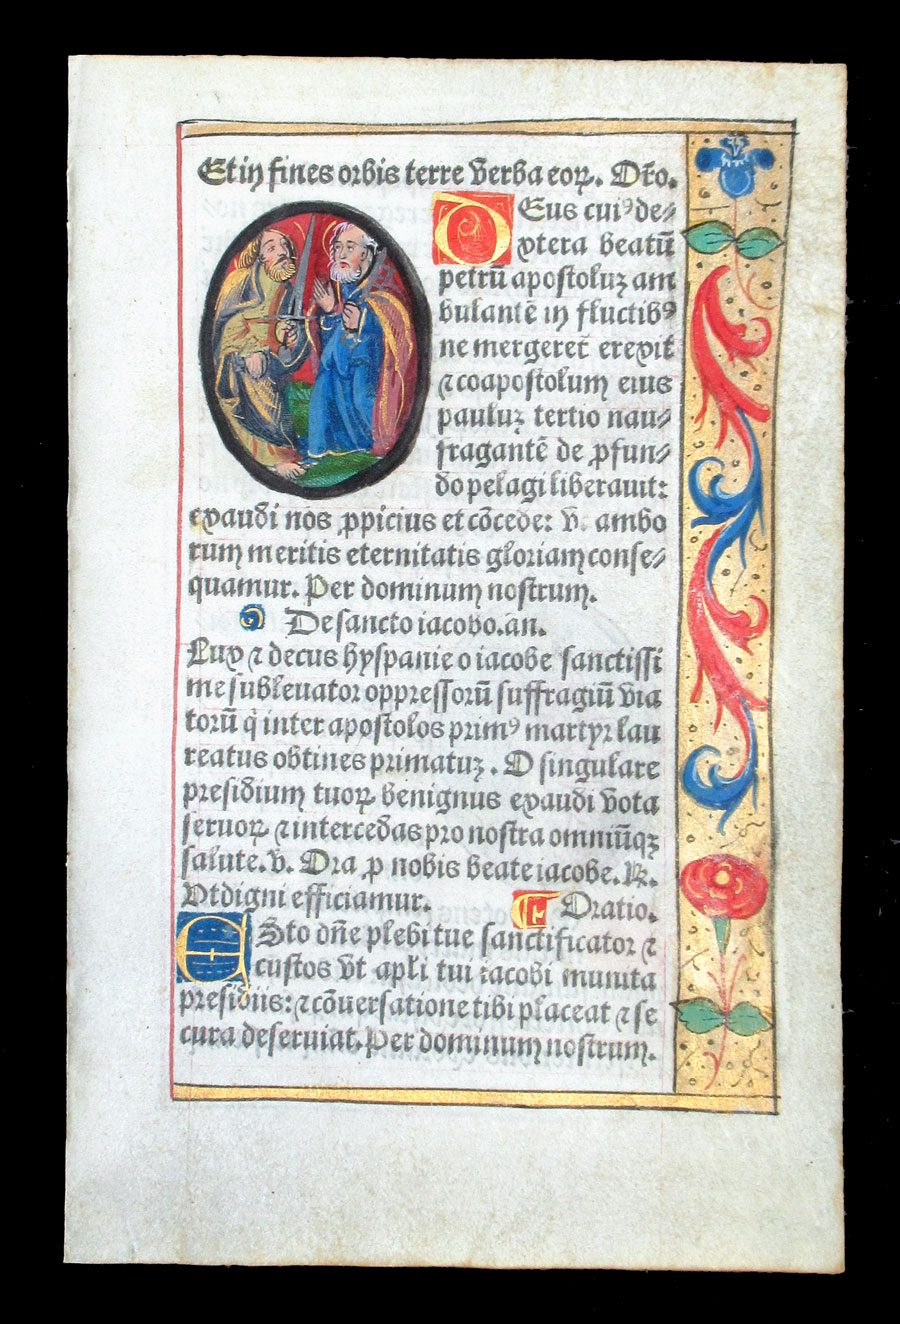 Et in fines orbis terre verba eoꝝ. Or̄o.
DEus cuiꝰ de⸗
xtera beatū
petrū apostoluꝫ am
bulantē in fluctibꝰ
ne mergeret̄ erexit
⁊ coapostolum eius
pauluꝫ tertio nau⸗
fragantē de ꝓfun⸗
do pelagi liberauit:
exaudi nos ꝓpicius et cōcede: vt ambo
rum meritis eternitatis gloriam conse⸗
quamur. Per dominum nostrum.
De sancto iacobo. an.
Lux ⁊ decus hyspanie o iacobe sanctissi
me subleuator oppressorū suffragiū via
torū q̇ inter apostolos primꝰ martyr lau
reatus obtines primatuꝫ. O singulare
presidium tuoꝝ benignus exaudi vota
seruoꝝ ⁊ intercedas pro nostra omniūqꝫ
salute. v. Ora ꝓ nobis beate iacobe. ꝶ.
Vt digni efficiamur. Oratio.
ESto dn̄e plebi tue sanctificator ⁊
custos vt apl̄i tui iacobi munita
presidiis: ⁊ cōuersatione tibi placeat ⁊ se
cura deseruiat. Per dominum nostrum.